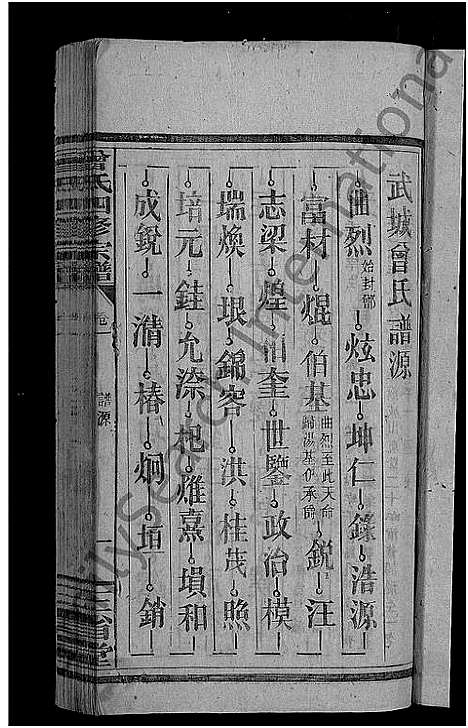 武城曾氏譜源
曲烈 始封鄫 炫忠 坤仁 錄浩源
富材 焜 伯基 曲烈至此天命歸湯基伊承師 銳 汪
志梁 煌 奎 世鑒 政治 模
瑞煥 垠 錦客 洪 桂茂 照
培元 銈 允漆 杞 熹 塤和
成銳 一清 椿 炯 垣 銷
曾氏四修宗譜
卷
譜源
一
三省堂